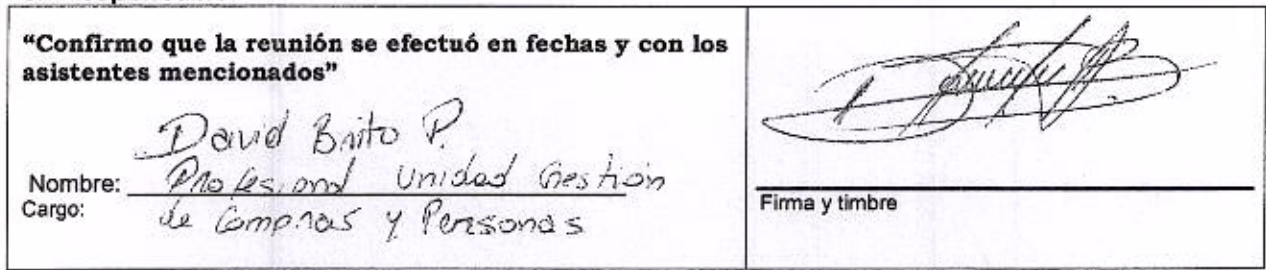 “Confirmo que la reunión se efectuó en fechas y con los
asistentes mencionados”
David Brito P.
Nombre: Profesional Unidad Gestión
Cargo: de Compras y Personas
Firma y timbre